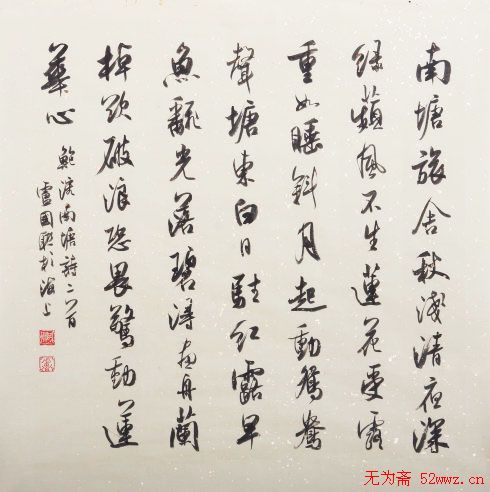 南塘旅舍秋淺清夜深
綠蘋風不生蓮花受露
重如睡斜月起動鴛鴦
聲塘東白日駐紅露早
魚飜光落碧潯畫舟蘭
棹欲破浪恐畏驚動蓮
華心
鮑溶南塘詩二首
盧國於海上
无为斋 52wwz.cn